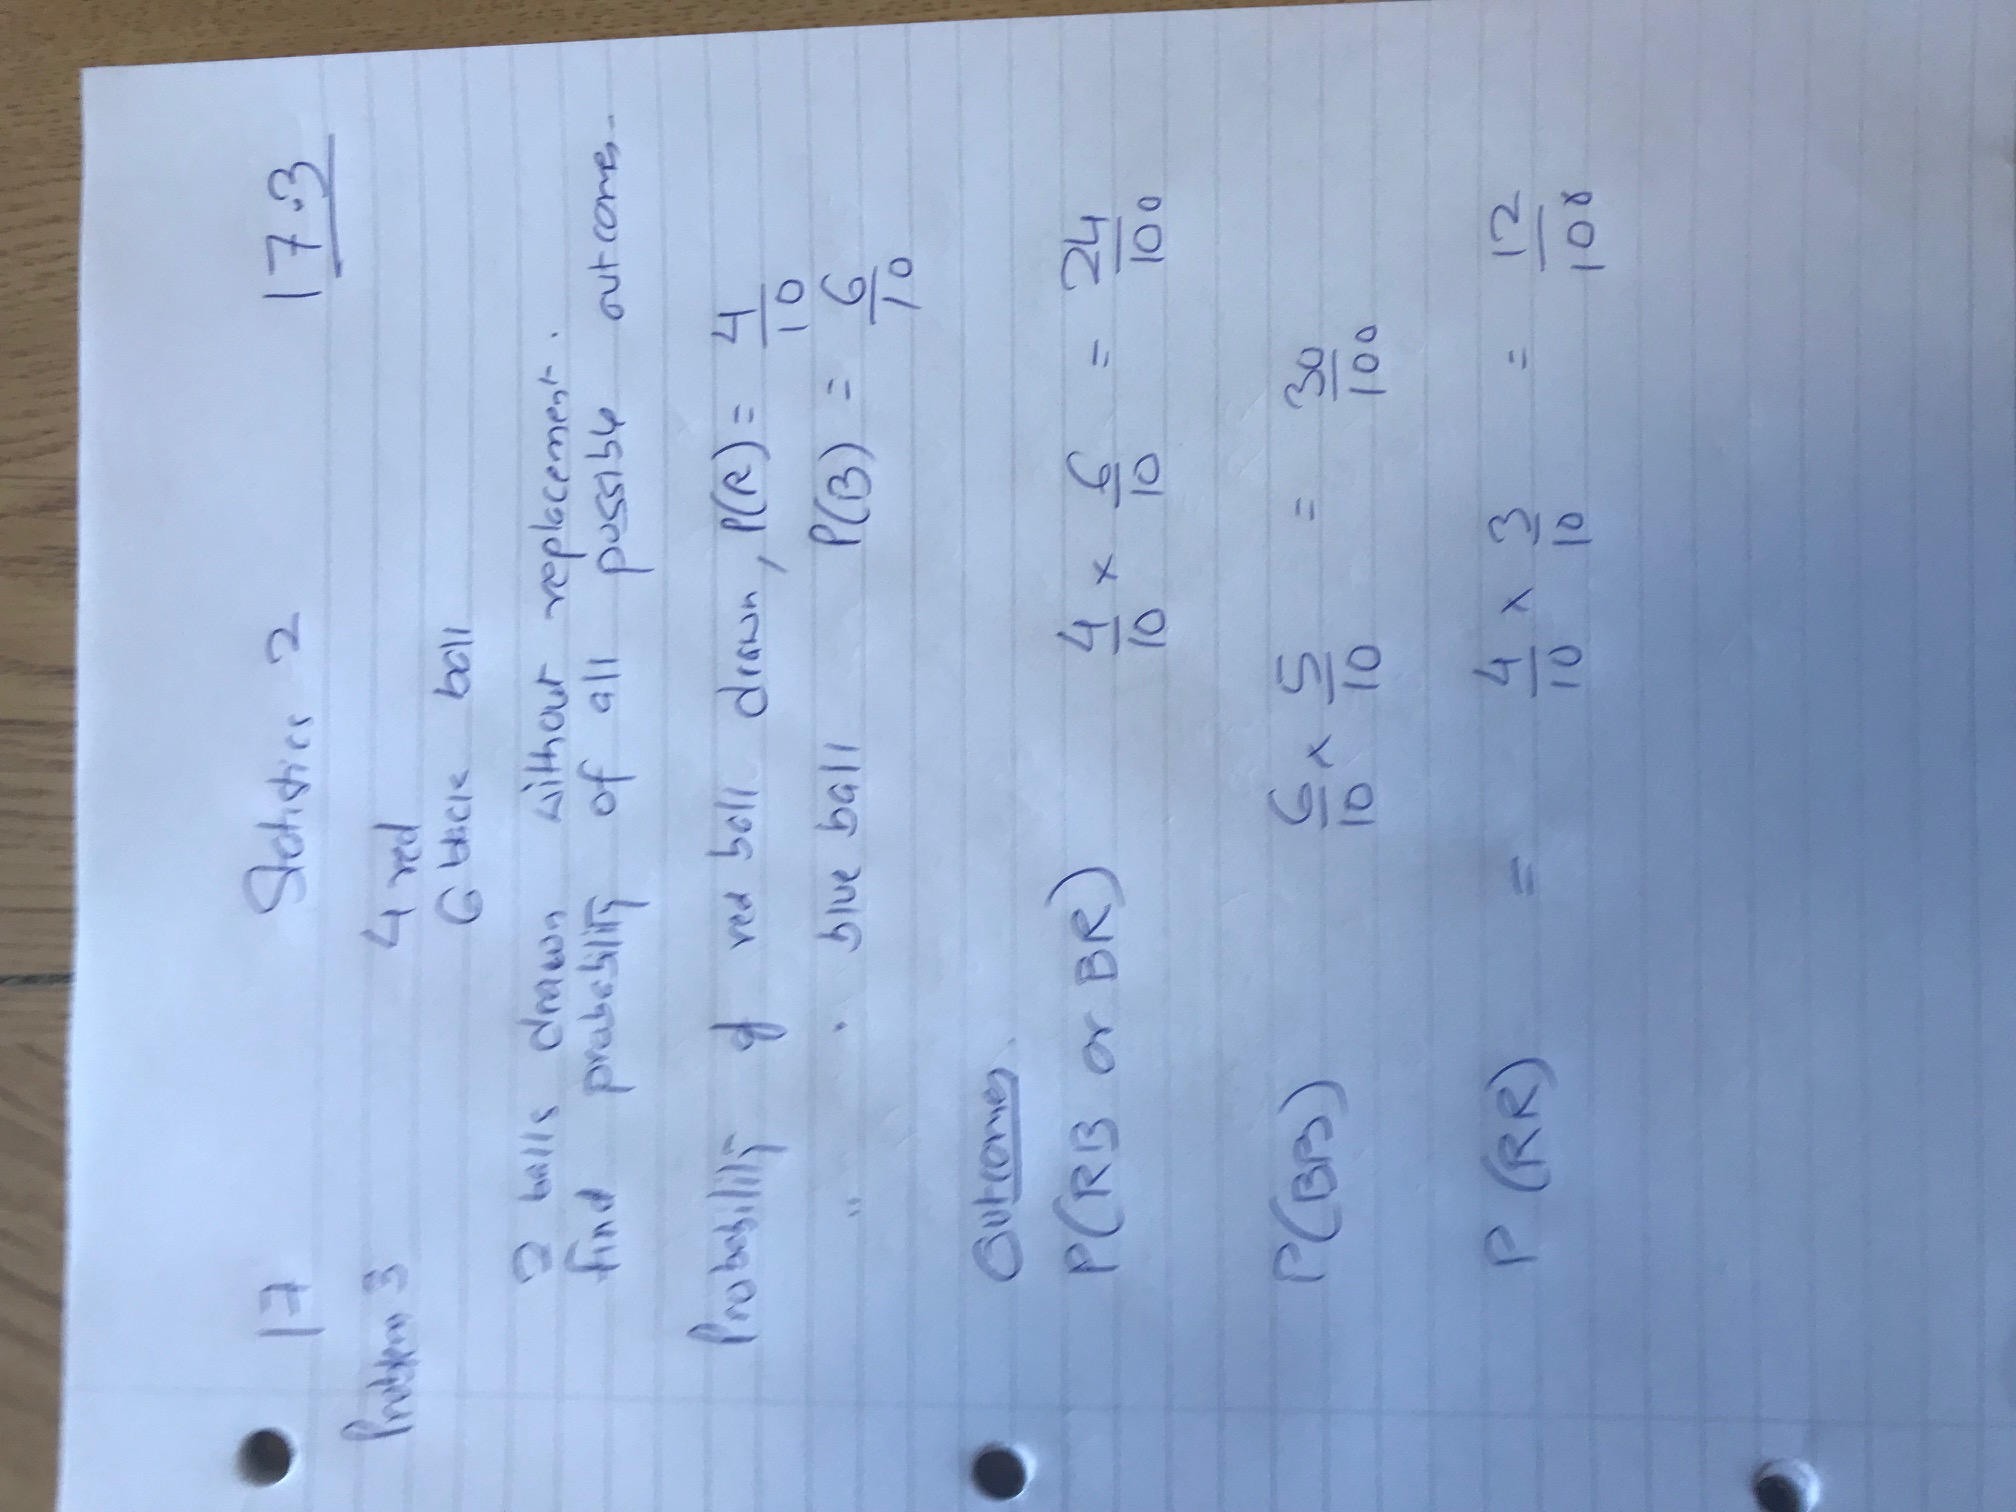 17 Statistics 2 17.3
Problem 3 4 red
6 blue ball
2 balls drawn without replacement.
find probability of all possible outcomes.
Probability of red ball drawn, P(R) = 4/10
" " blue ball P(B) = 6/10
Outcomes.
P(RB or BR) 4/10 × 6/10 = 24/100
P(BB) 6/10 × 5/10 = 30/100
P(RR) = 4/10 × 3/10 = 12/100